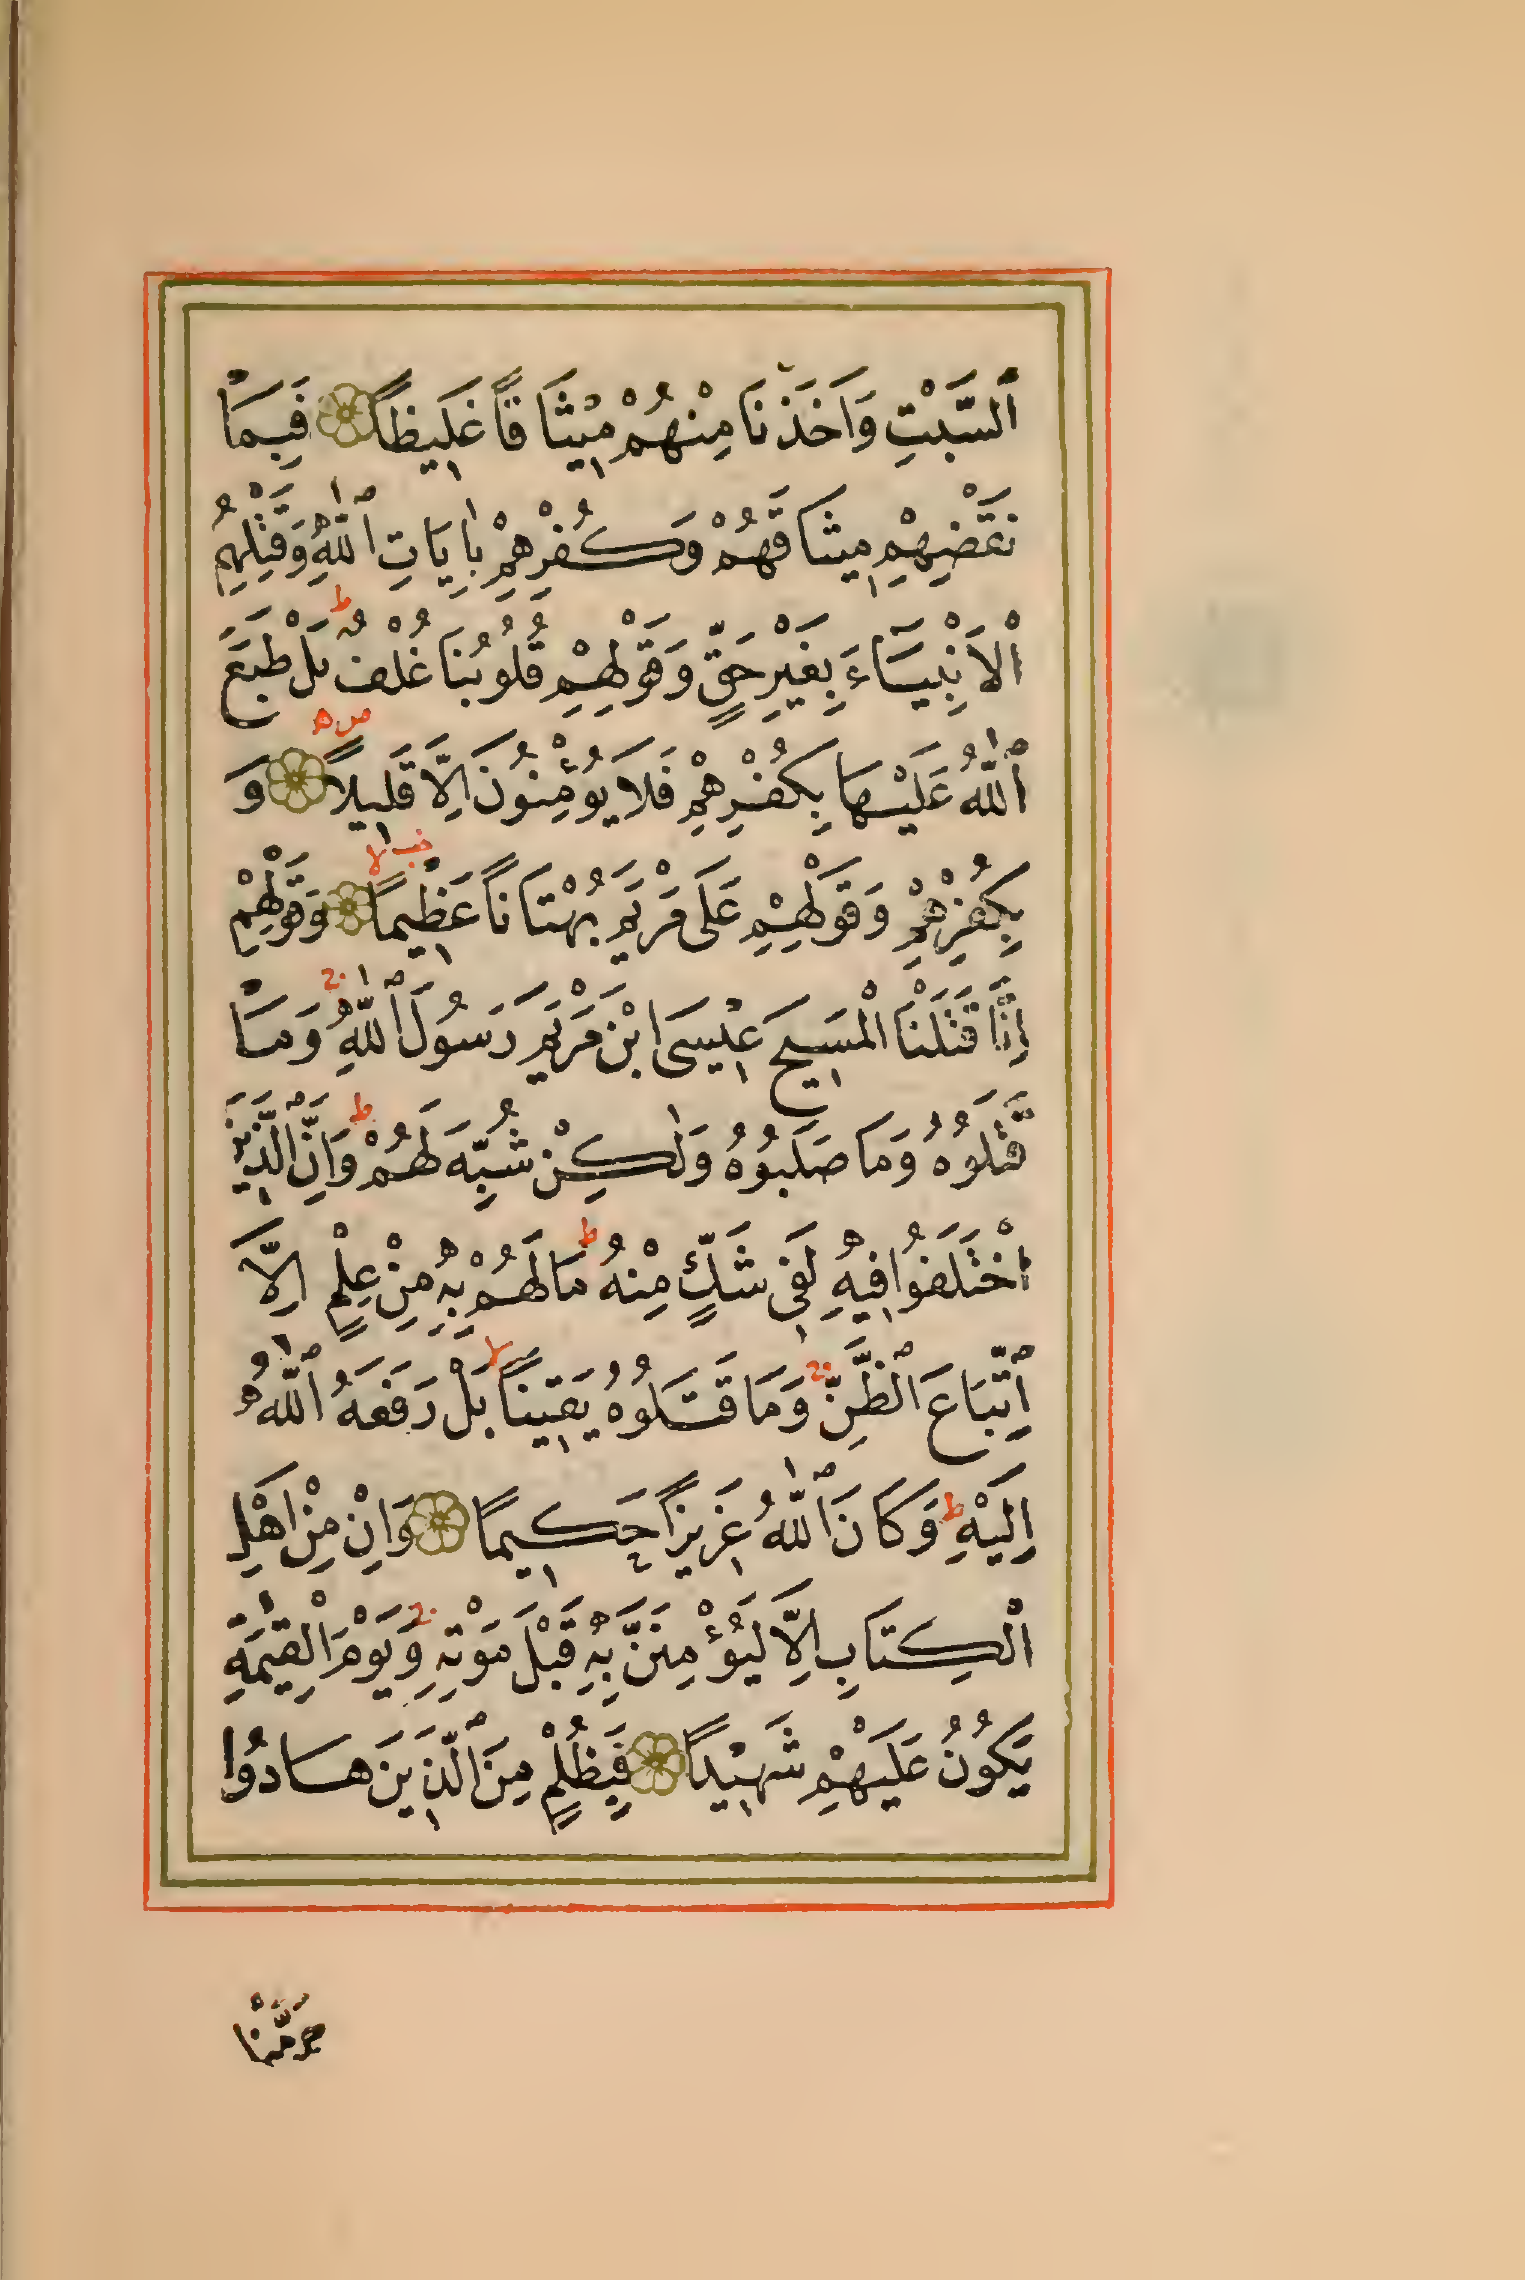 ٱلسَّبْتِ وَاَخَذْنَا مِنْهُمْ مٖيْثَاقًا غَلٖيظًا ۝ فَبِمَا
نَقْضِهِمْ مٖيثَاقَهُمْ وَكُفْرِهِمْ بِاٰيَاتِ ٱللّٰهِ وَقَتْلِهِمُ
ْالْاَنْبِيَٓاءَ بِغَيْرِ حَقٍّ وَقَوْلِهِمْ قُلُوبُنَا غُلْفٌ ط بَلْ طَبَعَ
ٱللّٰهُ عَلَيْهَا بِكُفْرِهِمْ فَلَا يُؤْمِنُونَ اِلَّا قَلٖيلًا ۝ وَ
بِكُفْرِهِمْ وَقَوْلِهِمْ عَلَى مَرْيَمَ بُهْتَانًا عَظٖيمًا ۝ لا وَقَوْلِهِمْ
اِنَّا قَتَلْنَا الْمَسٖيحَ عٖيْسَى ابْنَ مَرْيَمَ رَسُولَ ٱللّٰهِ ج وَمَا
قَتَلُوهُ وَمَا صَلَبُوهُ وَلٰكِنْ شُبِّهَ لَهُمْ ط وَاِنَّ ٱلَّذٖينَ
اخْتَلَفُوا فٖيهِ لَفٖي شَكٍّ مِنْهُ ط مَا لَهُمْ بِهٖ مِنْ عِلْمٍ اِلَّا
اتِّبَاعَ ٱلظَّنِّ ج وَمَا قَتَلُوهُ يَقٖينًا لا بَلْ رَفَعَهُ ٱللّٰهُ
اِلَيْهِ ط وَكَانَ ٱللّٰهُ عَزٖيزًا حَكٖيمًا ۝ وَاِنْ مِنْ اَهْلِ
الْكِتَابِ اِلَّا لَيُؤْمِنَنَّ بِهٖ قَبْلَ مَوْتِهٖ ج وَيَوْمَ الْقِيٰمَةِ
يَكُونُ عَلَيْهِمْ شَهٖيْدًا ۝ فَبِظُلْمٍ مِنَ ٱلَّذٖينَ هَادُوا
حَرَّمْنَا